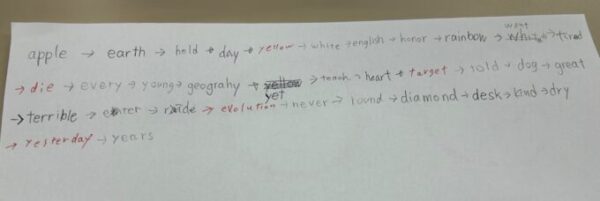 apple → earth → held → day → yellow → white → english → honor → rainbow → went → tired
→ die → every → young → geograhy → yet → teach → heart → target → told → dog → great
→ terrible → enter → → evolution → never → round → diamond → desk → kind → dry
→ yesterday → years